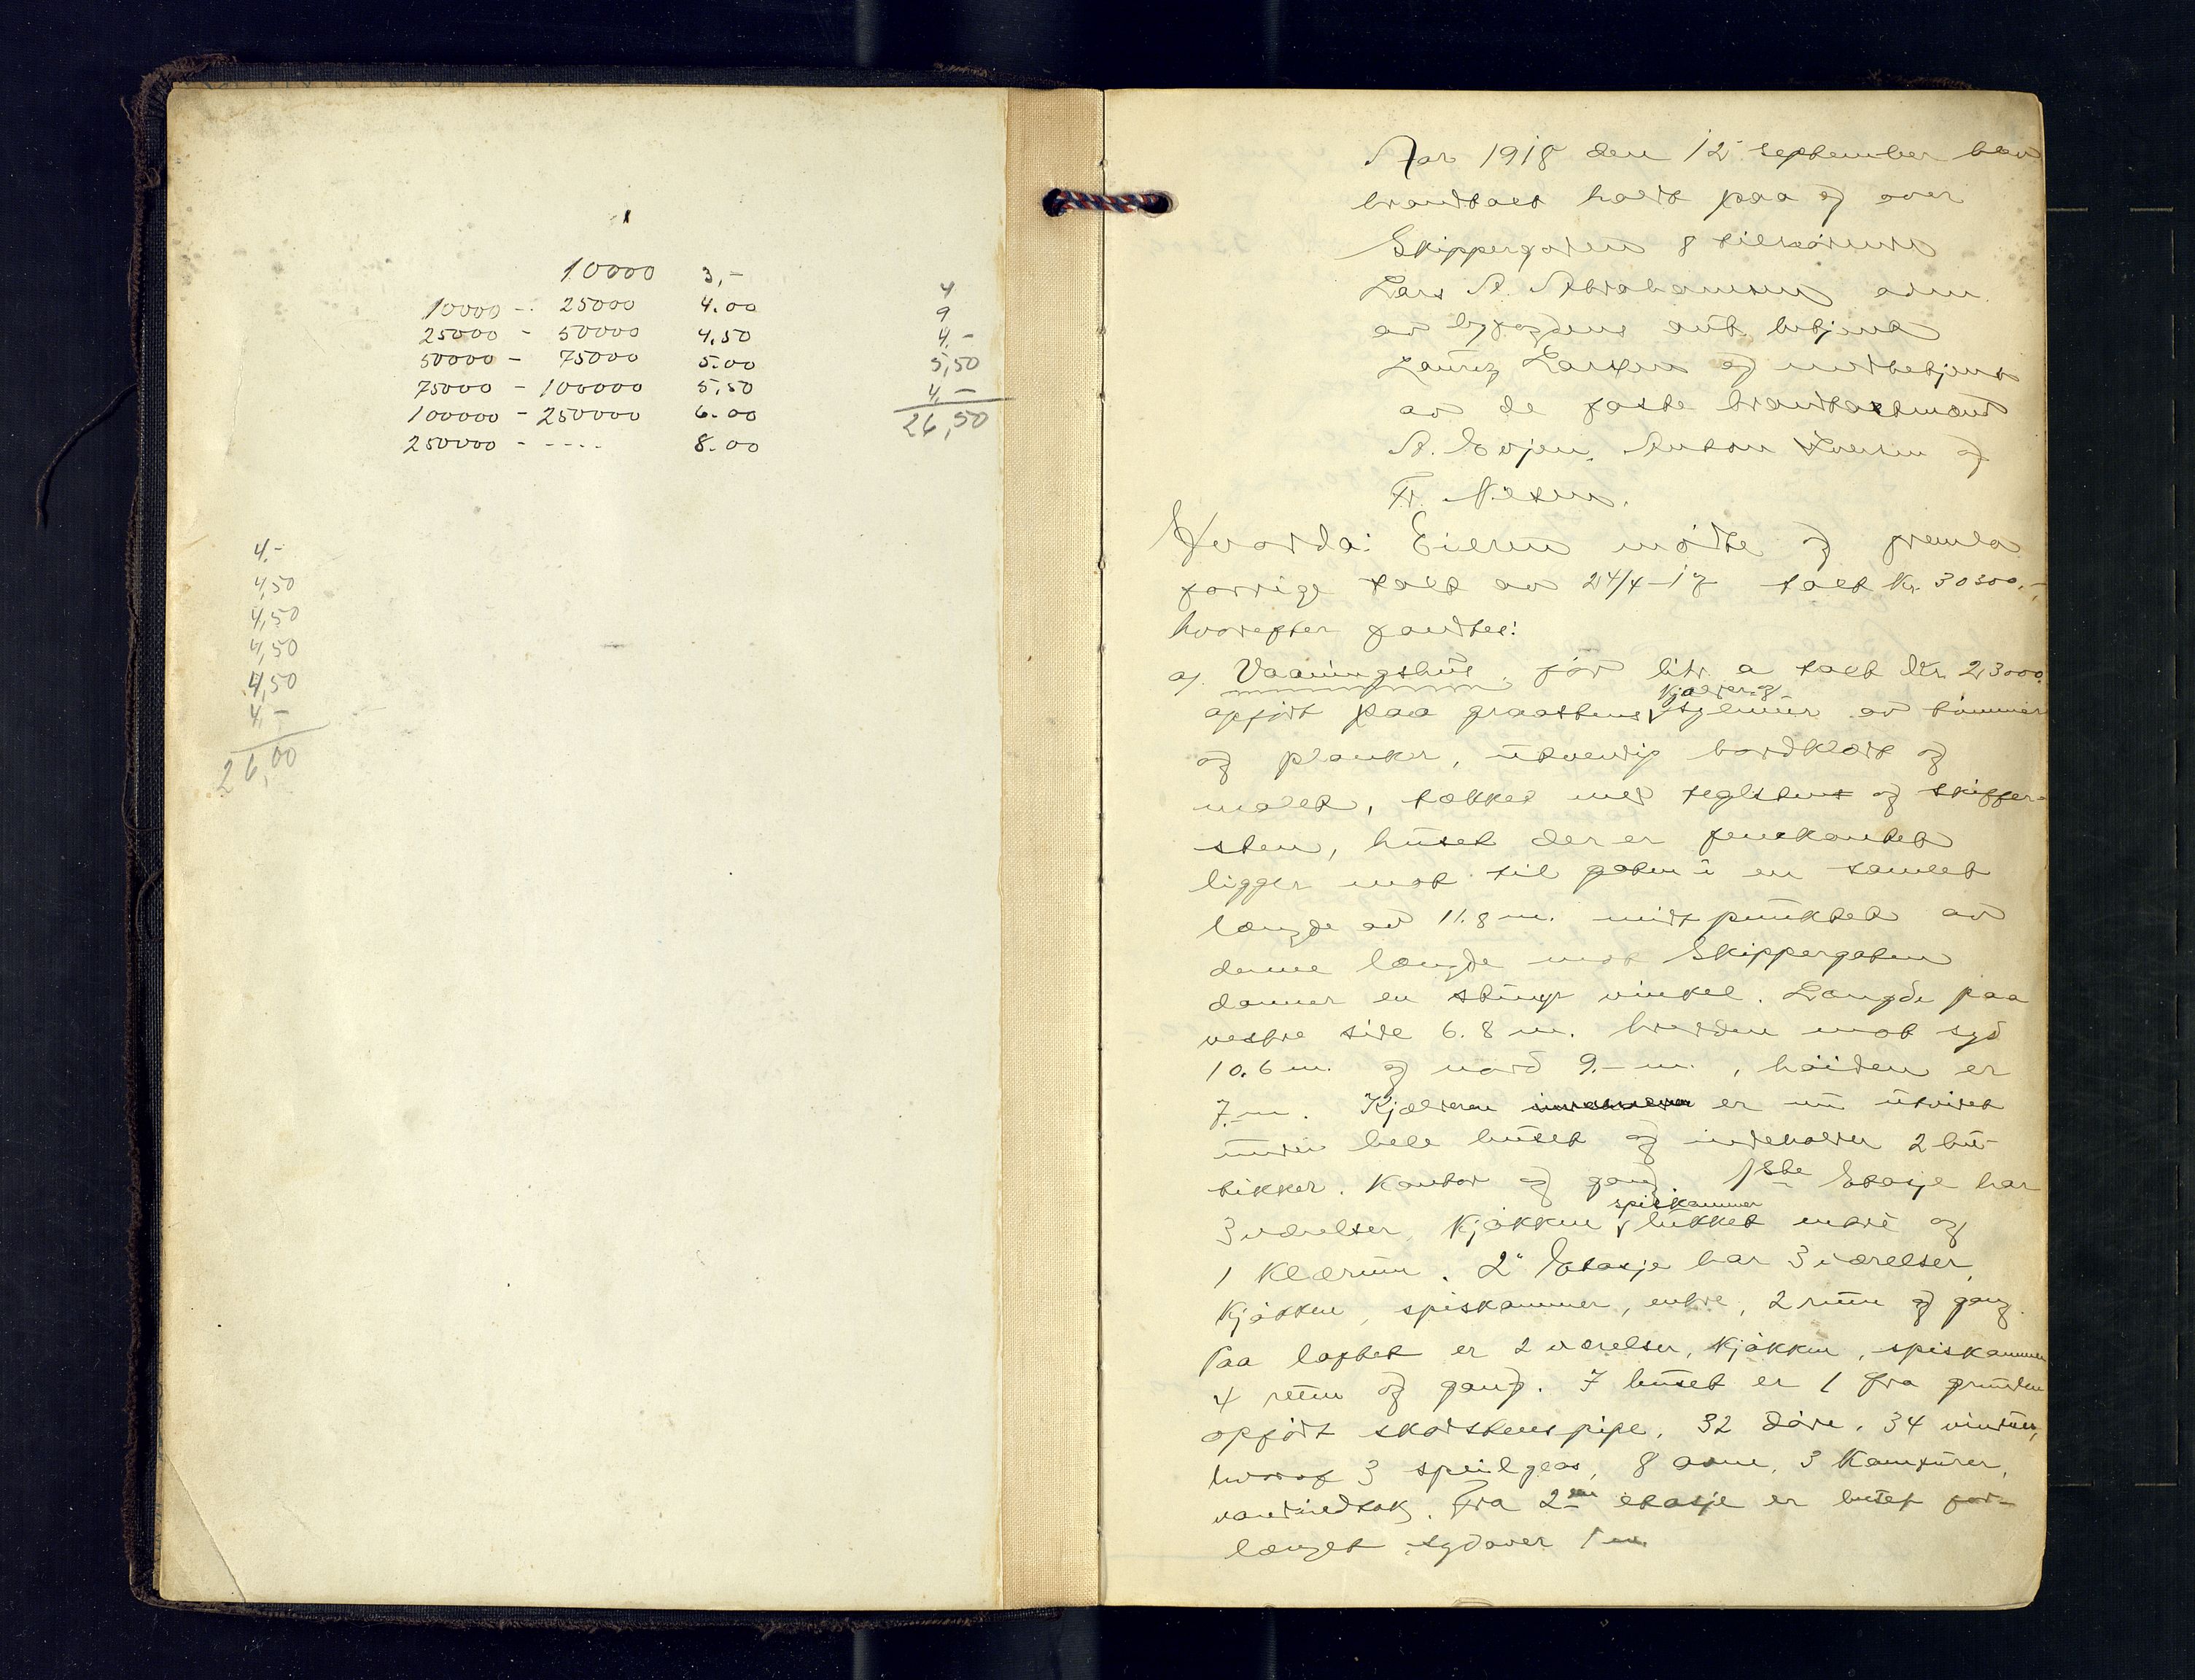 10000 3,-
10000 - 25000 4.00
25000 - 50000 4,50
50000 - 75000 5.00
75000 - 100000 5,50
100000 - 250000 6.00
250000 - ---- 8.00
4
9
4,-
5,50
4,-
26,50
4,-
4,50
4,50
4,50
4,50
4,-
26,00
Aar 1918 den 12 september blev
brandtakst holdt paa og over
Skippergaten 8 tilhørende
Lars A. Abrahamsen adm.
av byfogdens aut. betjent
Lauritz Larsen og meddebetjent
av de faste brandtakstmænd
A. Evjen, Anton Iversen og
Fr. Nilsen.
Hvorda: Eieren mødte og fremla
forrige takst av 24/4-17 takst Kr. 30300.-,
hvorefter fandtes:
a). Vaaningshus, før litr. a takst Kr. 23000.
Kjælder og
opført paa graastens sylmur av tømmer
og planker, utvendig bordklædt og
malet, tækket med teglsten og skiffer-
sten, huset der er femkantet
ligger mot til gaten i en samlet
længde av 11.8 m. midtpunktet av
denne længde mot Skippergaten
danner en stump vinkel. Længde paa
vestre side 6.8 m. bredden mot syd
10.6 m. og nord 9.- m., høiden er
7.- m. Kjælderen er nu utvidet
under hele huset og indeholder 2 bu-
tikker. Kontor og gang. 1ste Etasje har
spiskammer
3 værelser, Kjøkken lukket entre og
1 Klærum. 2" Etasje har 3 værelser,
Kjøkken, spiskammer, entre, 2 rum og gang.
Paa loftet er 2 værelser, Kjøkken, spiskammer
4 rum og gang. I huset er 1 fra grunden
opført skorstenspipe, 32 døre, 34 vinduer,
hvorav 3 speilglas, 8 ovne, 3 Komfurer,
vandindtak. Fra 2den etasje er huset for-
længet sydover 1 m.